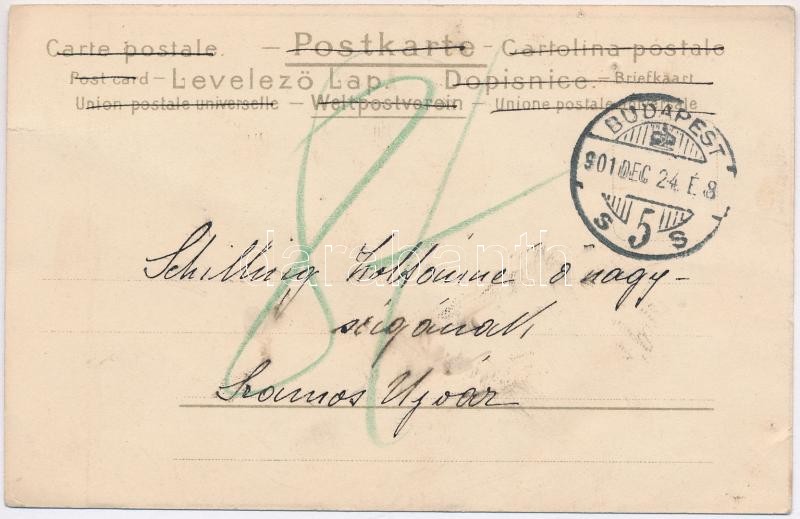 Carte postale. – Postkarte – Cartolina postale
Post card – Levelező Lap. – Dopisnice. – Briefkaart
Union postale universelle – Weltpostverein – Unione postale universale
BUDAPEST
901 DEC 24. É. 8
5
S S
Schilling Zoltánné ő nagy-
ságának
Szamos Ujvár
darabanth